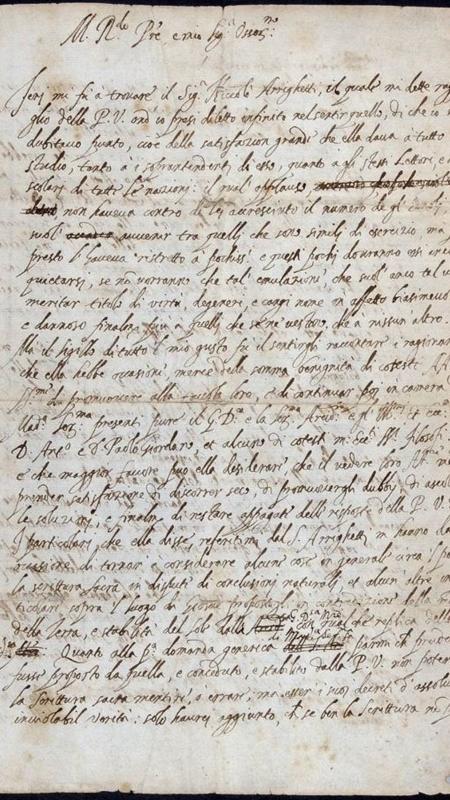 M. R.do Pre e mio Sig.r Osser.mo
Ieri mi fu à trovare il Sig.r Niccolò Arrighetti, il quale mi dette rag
glio della P. V. ond' io presi diletto infinito nel sentir quello, di che io
dubitavo punto, cioè della satisfazion grande che ella dava à tutto
studio, tanto à i sopraintendenti di esso, quanto a gli stessi Lettori, e
scolari di tutte le nazioni: il qual applauso
non haveva contro di lei accresciuto il numero de gl'
suol' avvenir tra quelli, che sono simili di esercizio, ma
presto l'haveva ristretto à pochiss.i e questi pochi dovranno essi
quietarsi, se nõ vorranno che tal' emulazione, che suol' anco tal v
meritar titolo di virtù, degeneri, e cangi nome in affetto biasimevo
e dannoso finalm.te più à quelli, che se ne vestono, che à nissun altro.
Mà il sigillo di tutto 'l mio gusto fu il sentirgli raccontare i ragionam
che ella hebbe occasione, mercè della somma benignità di coteste Alt
di promuovere alla tavola loro, e di continuar poi in camera
Mad.a Ser.ma presenti pure il G. D. e la Ser.
D. Ant.o e D. Paolo Giordano et alcuni di cotesti Filosofi
e che maggior favore può ella desiderare che il vedere loro Alt.
prender satisfazione di discorrer seco, di promuovergli dubbi, di ascol
le soluzioni, e finalm. di restare appagati delle risposte della P. V.
I particolari, che ella disse, referitimi dal S. Arrighetti m' hanno da
occasione di tornar à considerare alcune cose in generale circa 'l po
la scrittura sacra in dispute di conclusioni naturali, et alcun' altre in
ticolari sopra 'l luogo di Giosuè propostogli in contradizione della
della terra, e stabilità del sole dalla replica della
Quanto alla p.a domanda generica parmi
fusse proposto da quella, e conceduto, e stabilito dalla P. V. non poter
la Scrittura sacra mentire, o errare, ma esser i suoi decreti d' assolu
inviolabil verità: solo haurei aggiunto, che se ben la Scrittura nõ